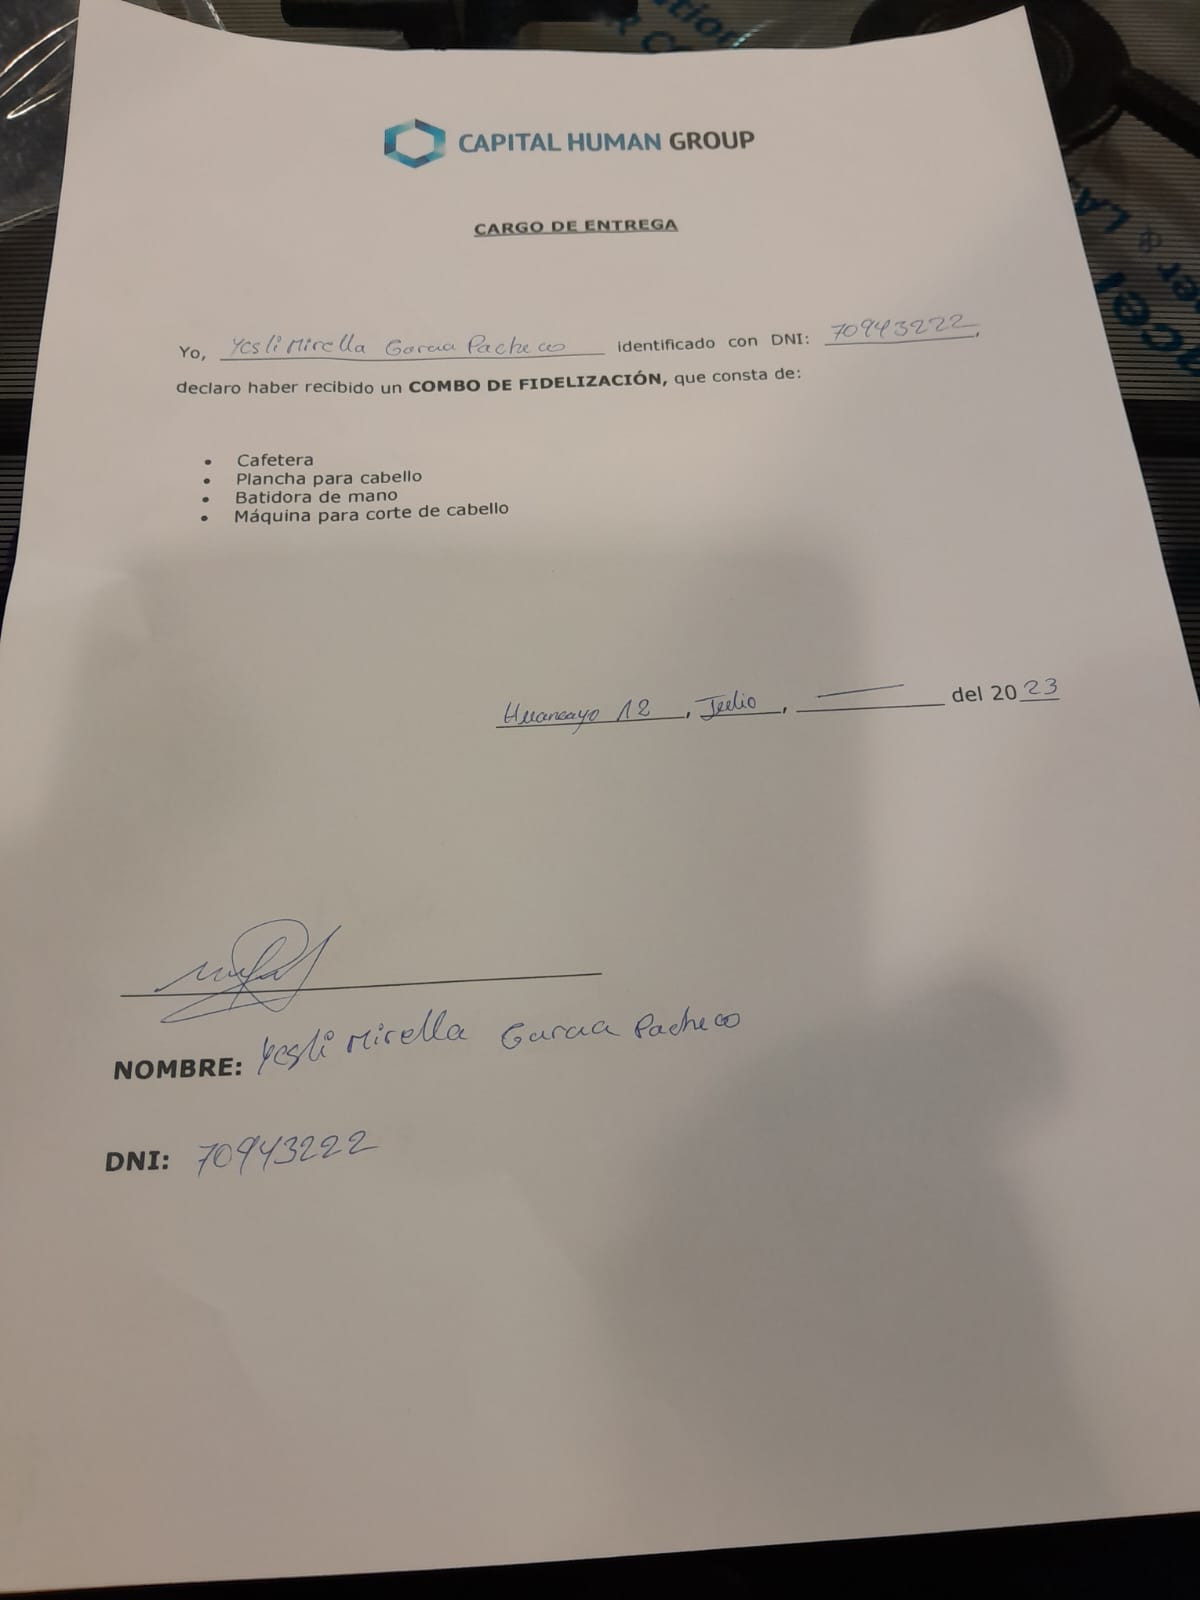 CAPITAL HUMAN GROUP
CARGO DE ENTREGA
Yo, Yesli Mirella Garcia Pacheco identificado con DNI: 70943222,
declaro haber recibido un COMBO DE FIDELIZACIÓN, que consta de:
• Cafetera
• Plancha para cabello
• Batidora de mano
• Máquina para corte de cabello
Huancayo 12, Julio, — del 2023
NOMBRE: Yesli Mirella Garcia Pacheco
DNI: 70943222